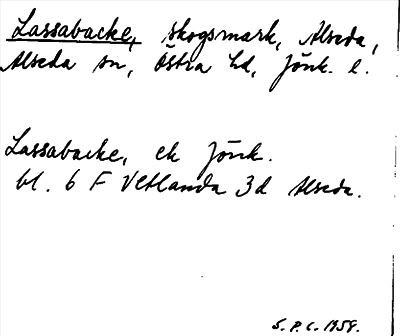 Lassabacke, skogsmark, Alseda,
Alseda sn, Östra hd, Jönk. l.
Lassabacke, ek Jönk.
bl. 6 F Vetlanda 3d Alseda.
S. P. C. 1958.